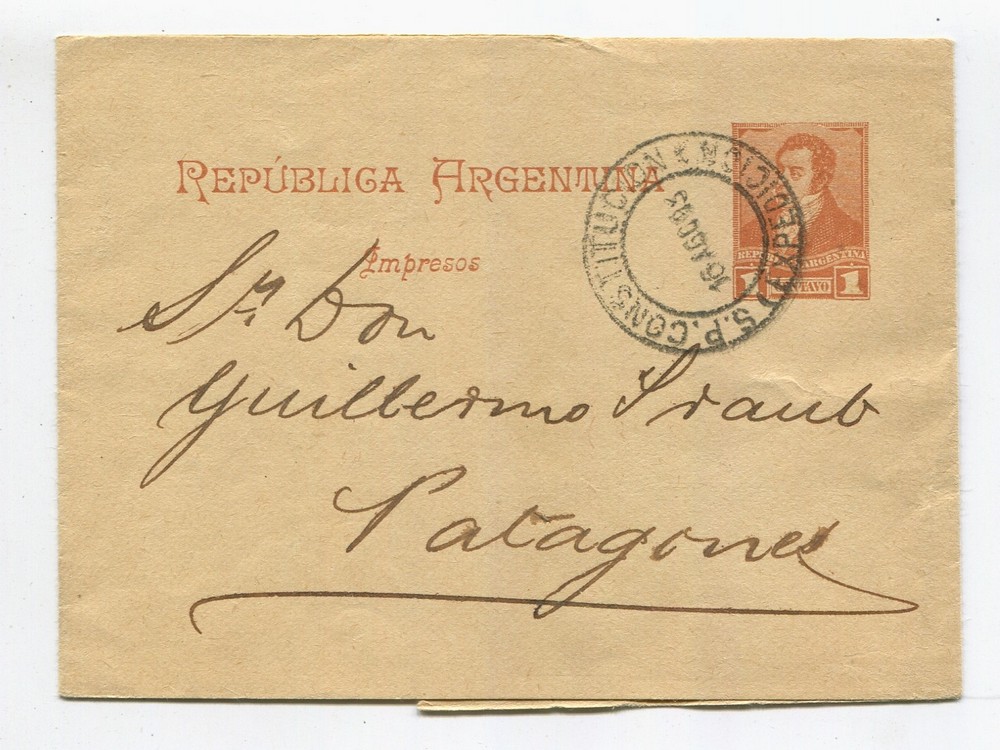 REPÚBLICA ARGENTINA
Impresos
REPUBLICA ARGENTINA
1 CENTAVO 1
EXPEDICION S.P. CONSTITUCION
16 AGO 93
Sr. Don
Guillermo
Patagones